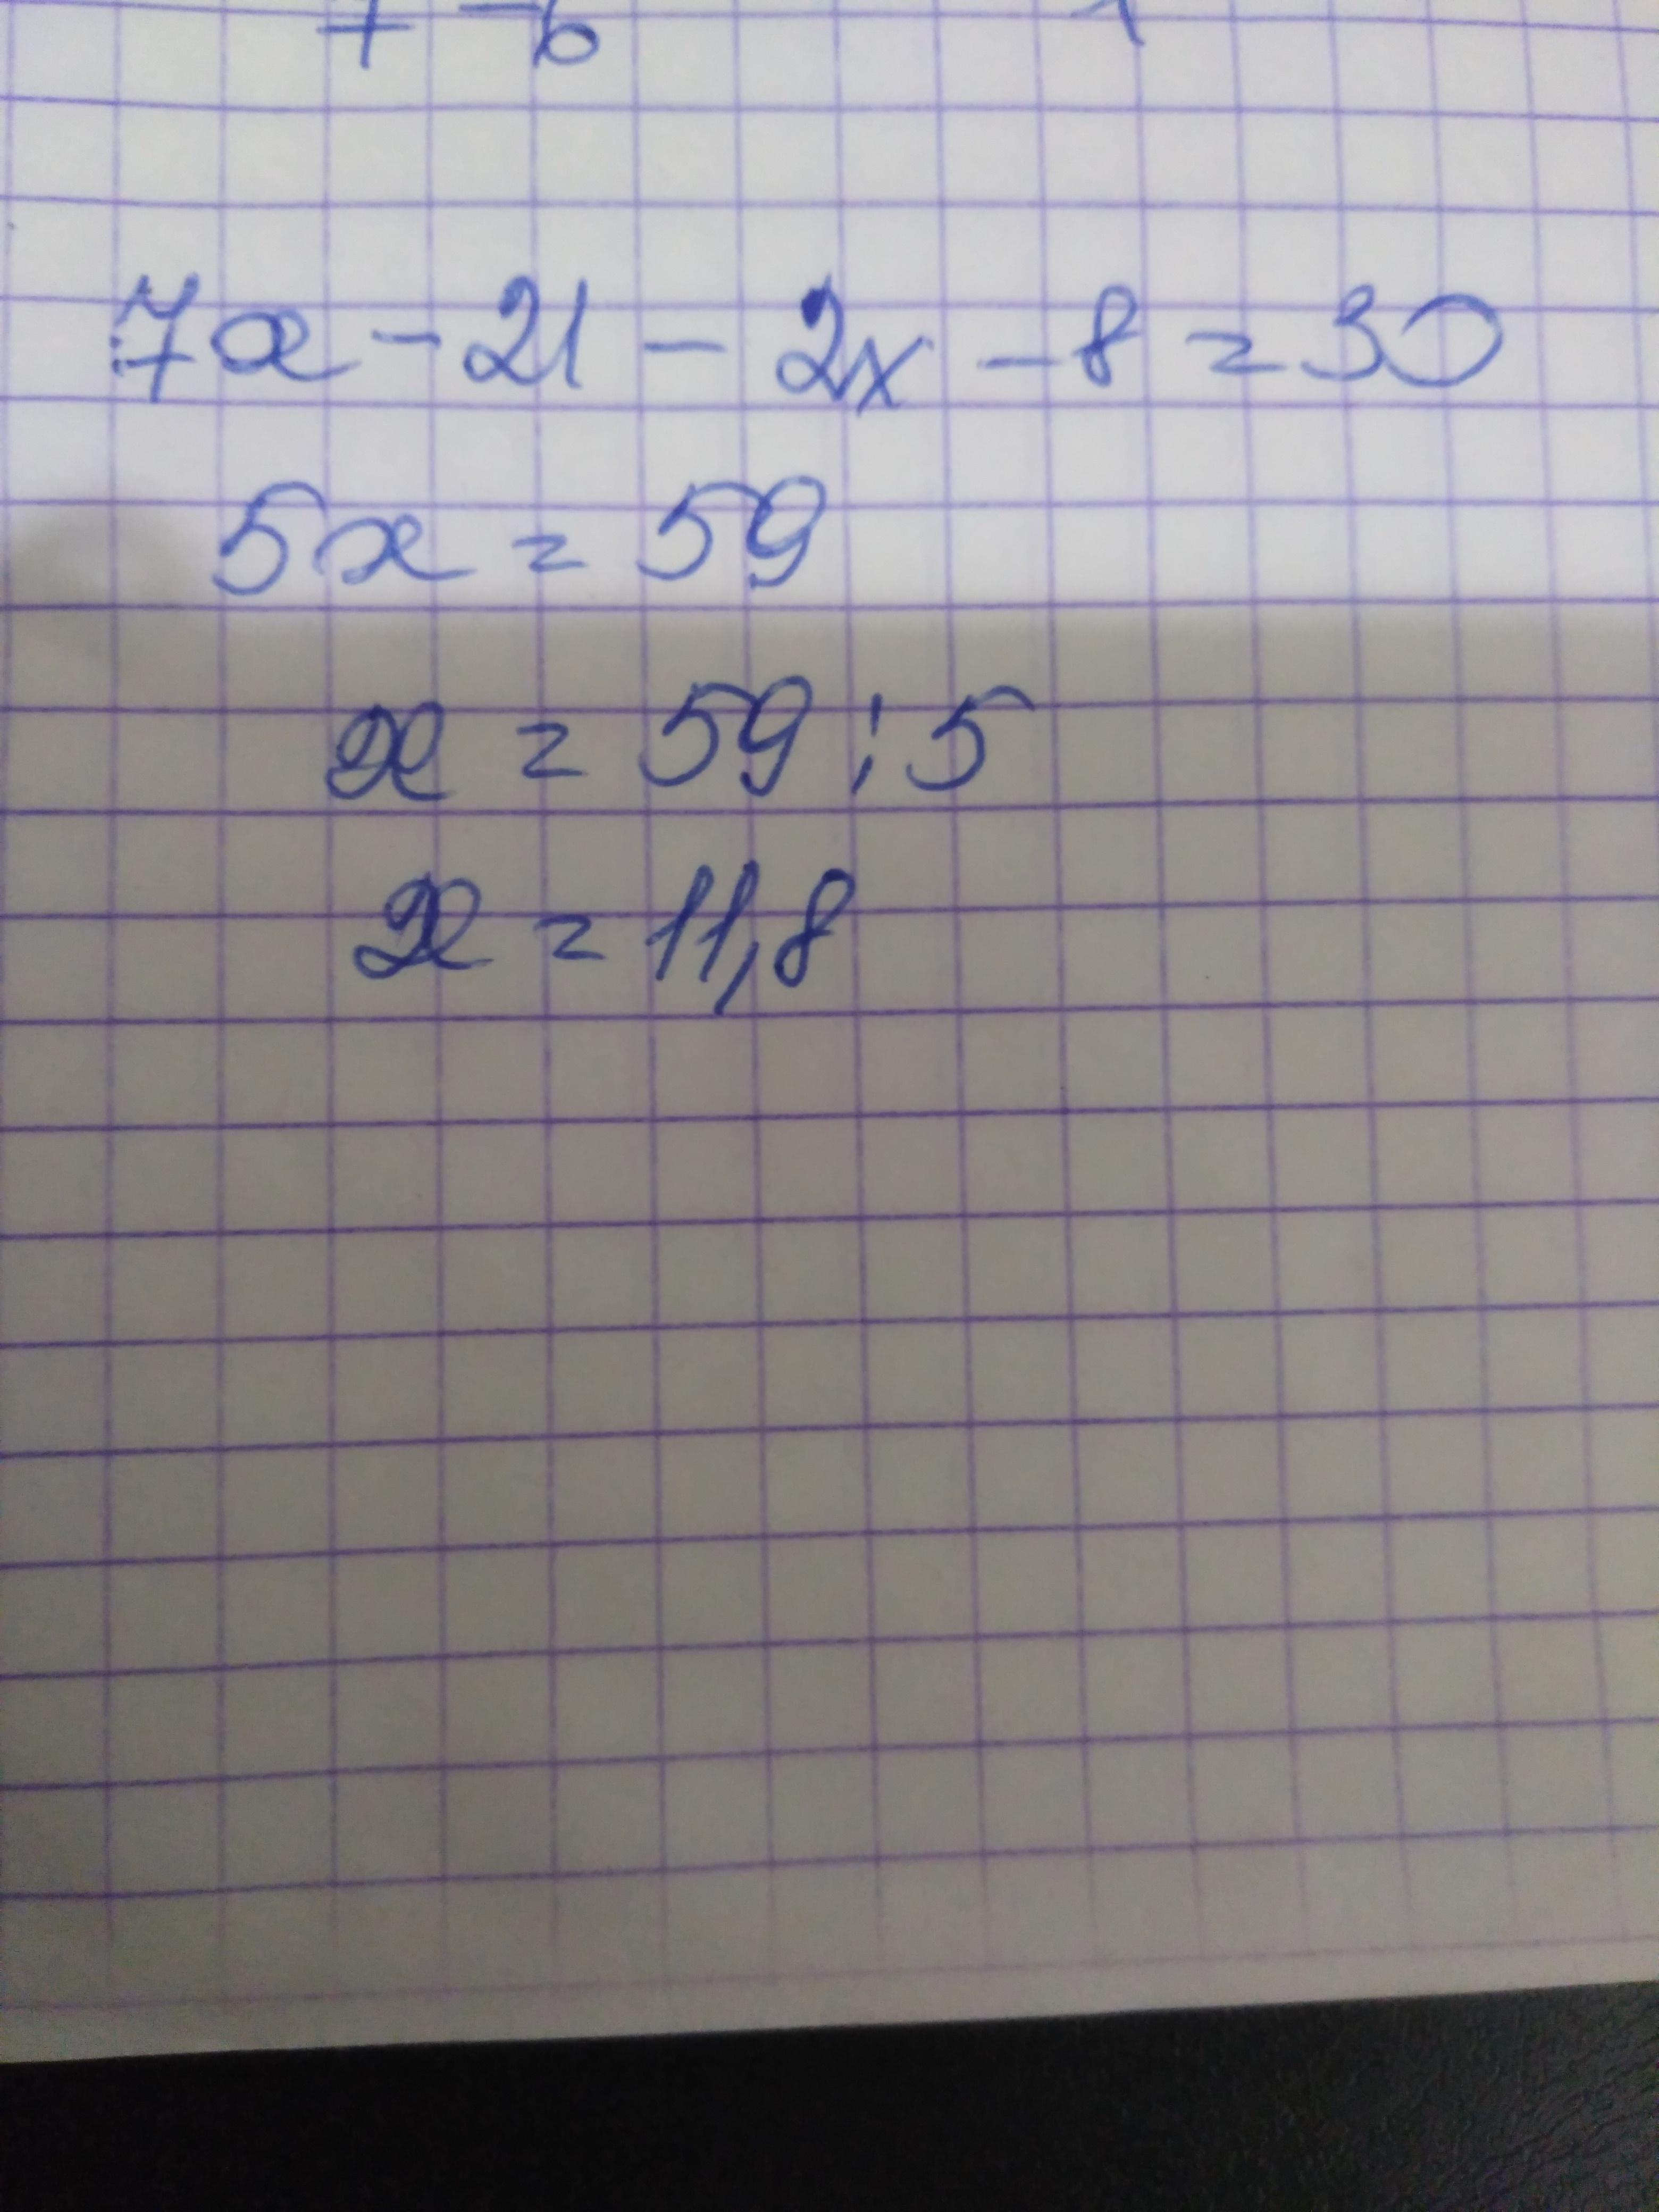 7x - 21 - 2x - 8 = 30
5x = 59
x = 59 : 5
x = 11,8